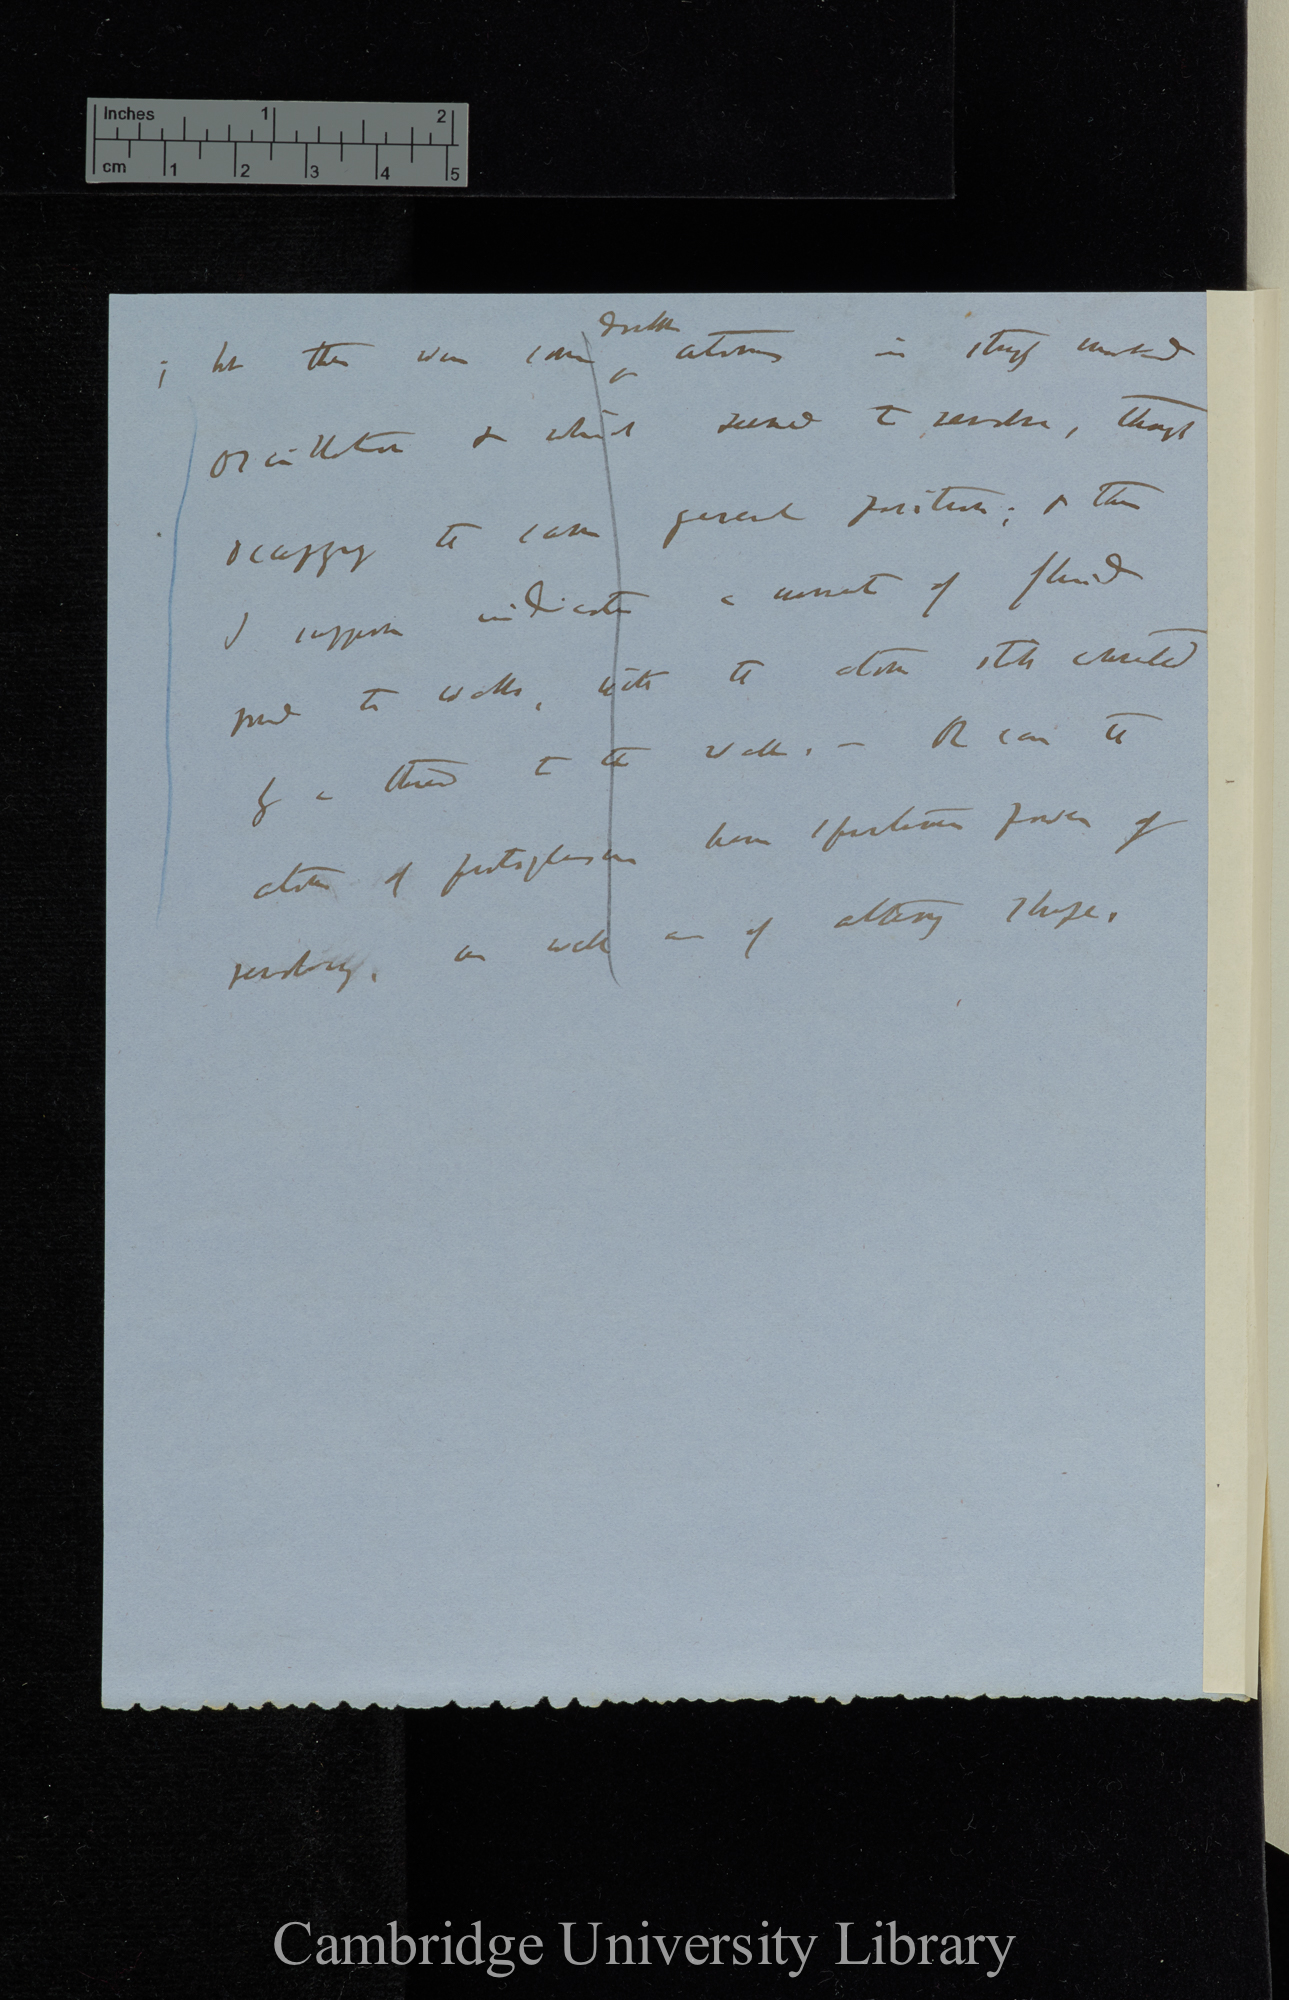 Inches 1 2
cm 1 2 3 4 5
double
; but there were some atoms in strongly marked
oscillation & which seemed to revolve, though
occupying the same general position; & this
I suppose indicates a current of fluid
round the walls, with the atom still connected
by a thread to the walls. — Or can the
atoms of protoplasm have spontaneous power of
revolving, as well as of altering shape.
Cambridge University Library